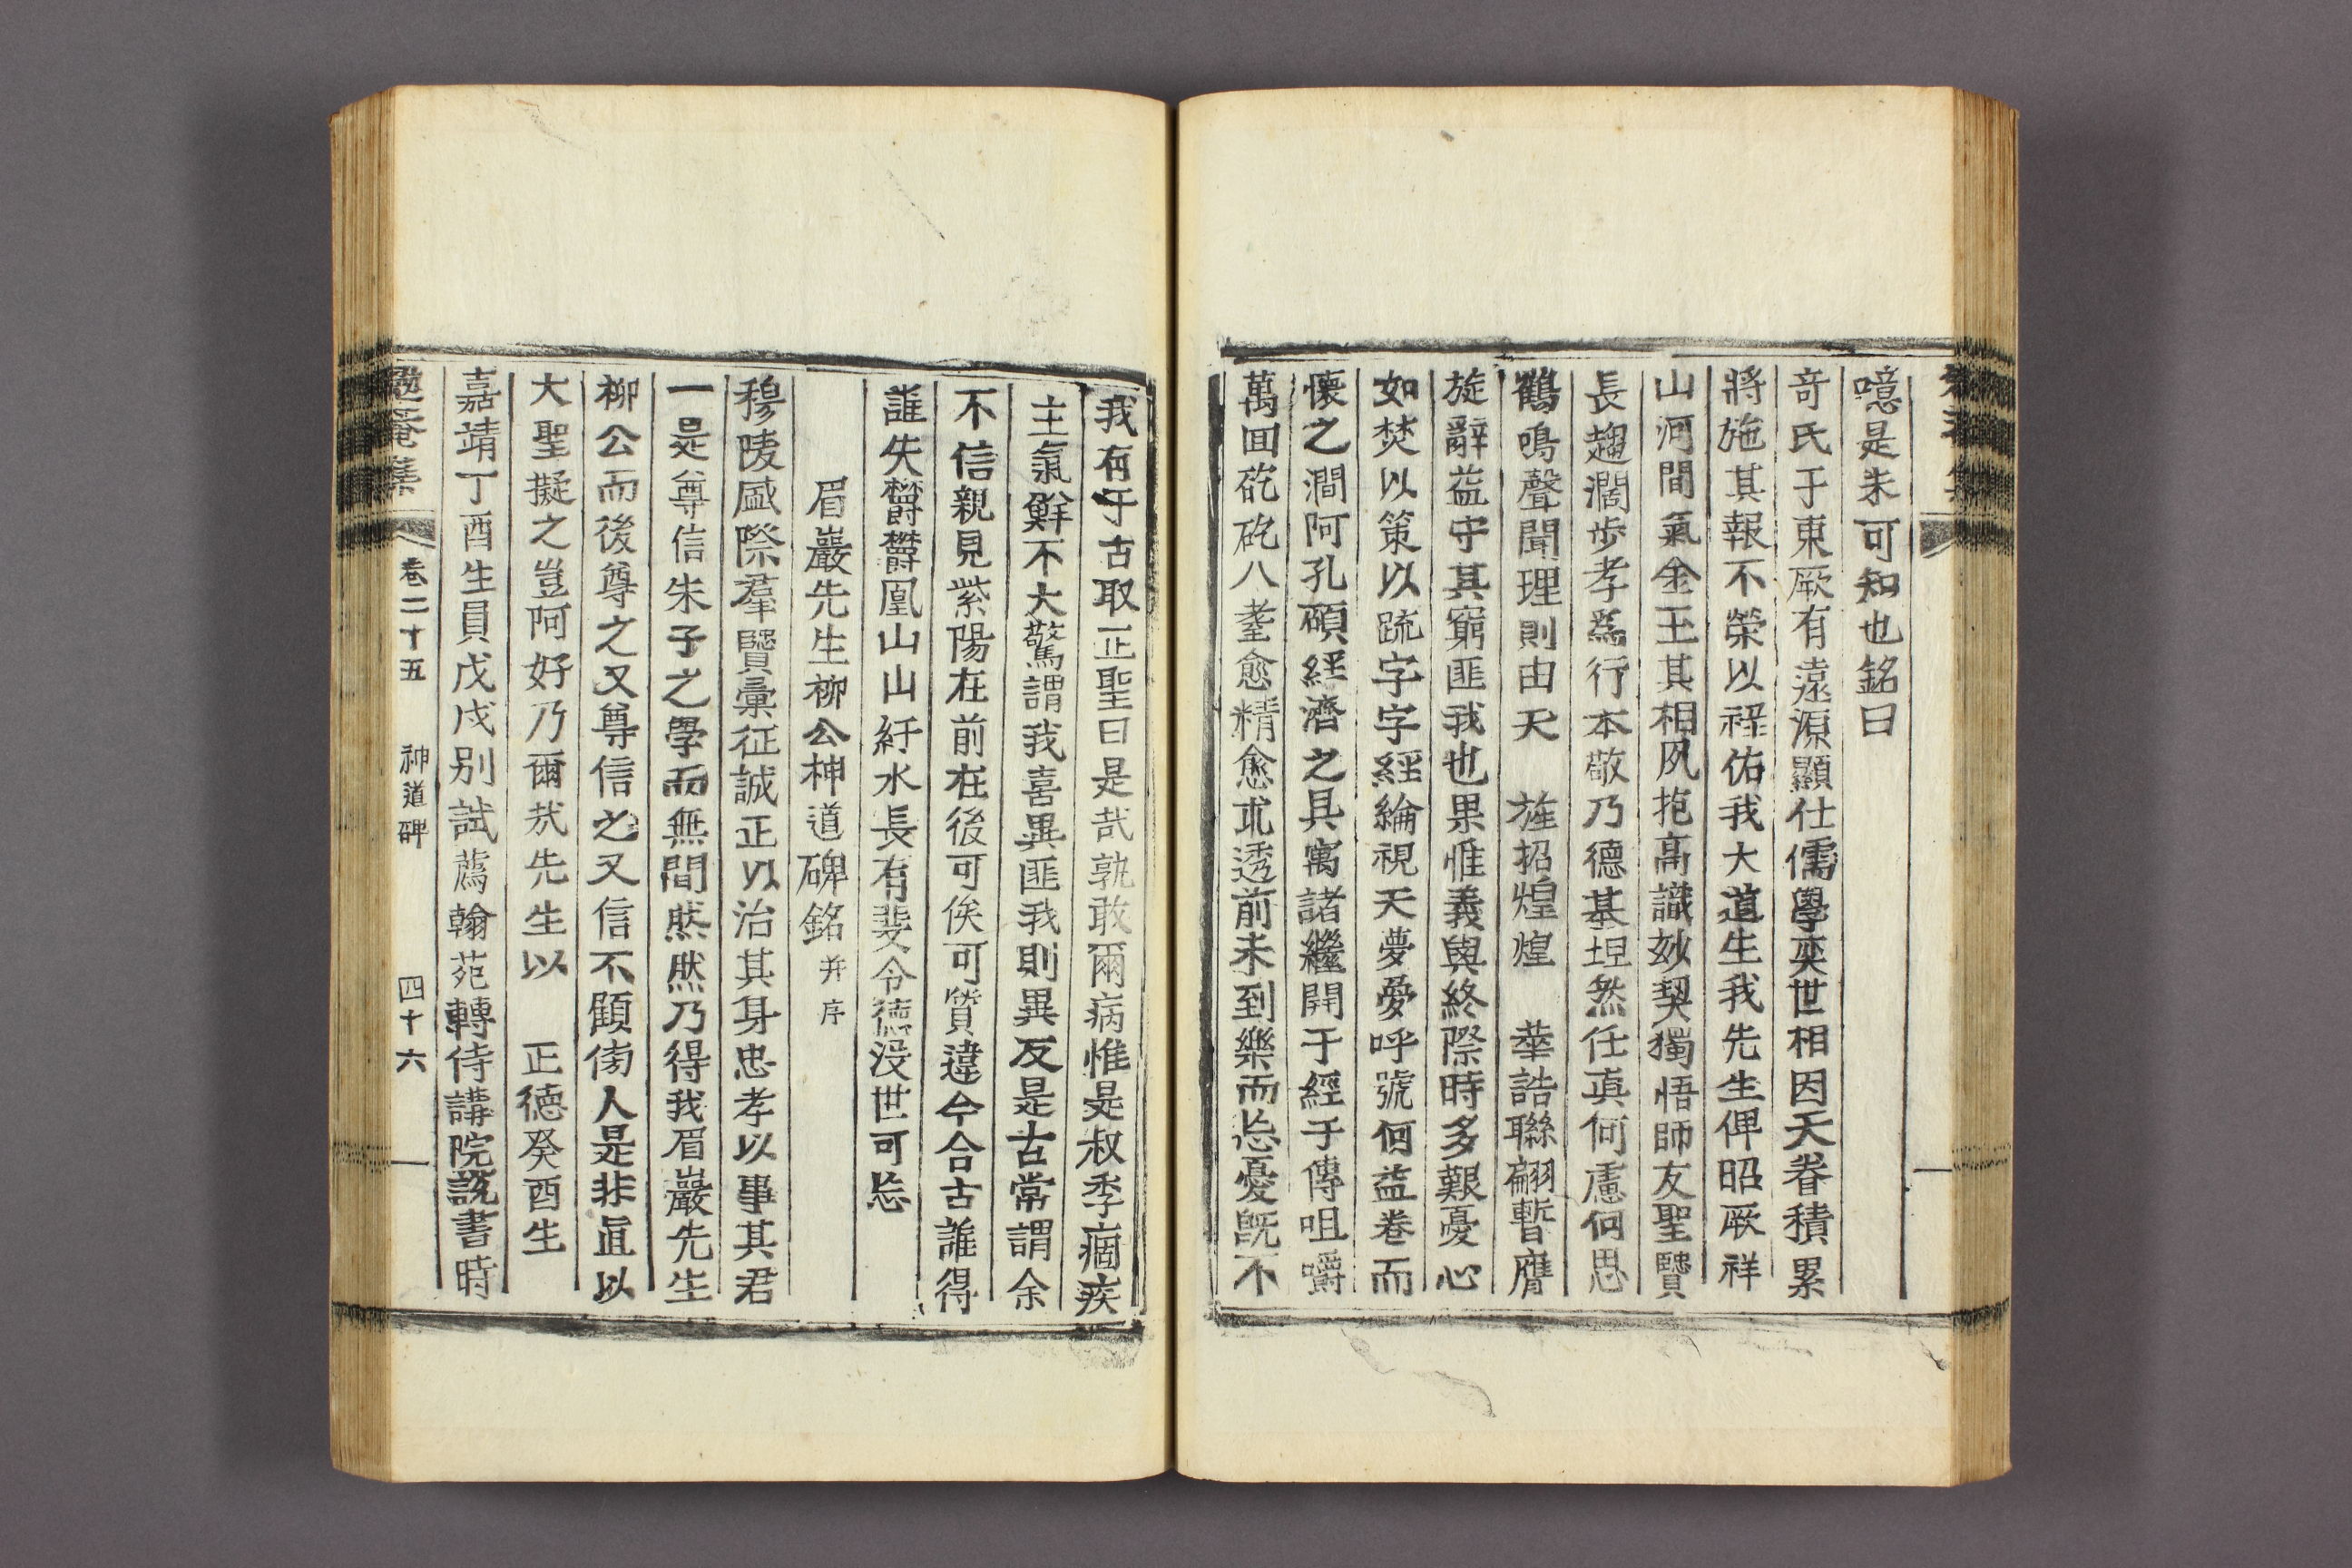 噫是朱可知也銘曰
奇氏于東厥有遠源顯仕儒學奕世相因天眷積累
將施其報不榮以祿佑我大道生我先生俾昭厥祥
山河間氣金玉其相夙抱高識妙契獨悟師友聖賢
長趨濶步孝爲行本敬乃德基坦然任真何慮何思
鶴鳴聲聞理則由天 旌招煌煌 華誥聯翩暫膺
旋辭益守其窮匪我也果惟義與終際時多艱憂心
如焚以策以疏字字經綸視天夢夢呼號何益卷而
懷之澗阿孔碩經濟之具寓諸繼開于經于傳咀嚼
萬回矻矻八耋愈精愈求透前未到樂而忘憂旣不
我有于古取正聖曰是哉孰敢爾病惟是叔季痼疾
主氣鮮不大驚謂我喜異匪我則異反是古常謂余
不信親見紫陽在前在後可俟可質違今合古誰得
誰失欝欝凰山山紆水長有斐令德沒世可忘
眉巖先生柳公神道碑銘 并序
穆陵盛際羣賢彙征誠正以治其身忠孝以事其君
一是尊信朱子之學而無間然然乃得我眉巖先生
柳公而後尊之又尊信之又信不顧傍人是非直以
大聖擬之豈阿好乃爾㢤先生以 正德癸酉生
嘉靖丁酉生員戊戌別試薦翰苑轉侍講院說書時
卷二十五 神道碑 四十六